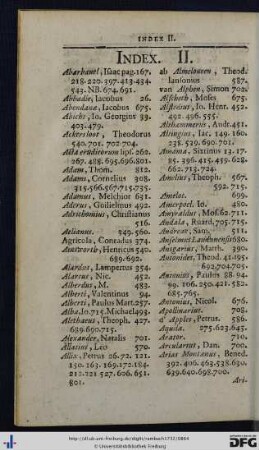 INDEX II.
INDEX. II.
Abarbanel, Isaac pag. 167.
218. 220. 397. 413. 434.
543. NB. 674. 691.
Abbadie, Jacobus 26.
Abendana, Jacobus 675.
Abicht, Io. Georgius 89.
403. 479.
Ackersloot, Theodorus
540. 701. 702. 704.
Acta eruditorum lips. 262.
267. 488. 695. 696. 801.
Adam, Thom. 812.
Adami, Cornelius 308.
315. 566. 567. 715. 735.
Adamus, Melchior 631.
Aderus, Guilielmus 492.
Adrichomius, Christianus
516.
Aelianus. 549. 560.
Agricola, Conradus 374.
Ainsworth, Henricus 540.
689. 692.
Alardus, Lampertus 354.
Alartus, Nic. 452.
Alberdus, M. 483.
Alberti, Valentinus 94.
Alberti, Paulus Mart. 257.
Alba. Io. 715. Michael 493.
Aletheæus, Theoph. 427.
689. 690. 715.
Alexander, Natalis 701.
Allatius, Leo 570.
Allix, Petrus 26. 72. 121.
150. 163. 169. 172. 184.
212. 121 527. 606. 651.
801.
ab Almeloveen, Theod.
Iansonius 587.
van Alphen, Simon 702.
Alscheth, Moses 675.
Alstedius, Io. Henr. 452.
492. 496. 555.
Althammerus, Andr. 451.
Altingius, Iac. 149. 160.
238. 529. 690. 701.
Amama, Sixtinus 13. 17.
85. 396. 415. 459. 628.
662. 713. 724.
Amelius, Theoph. 567.
592. 715.
Amelot. 699.
Amerpoel. Io. 486
Amyraldus, Mos. 62. 711.
Andala, Ruard, 705. 715
Andreae, Sam. 511.
Angelomus Luxoviensis 680.
Angarius, Matth. 390.
Antonides, Theod. 41. 495.
692. 704. 705.
Antonius, Paulus 88. 94.
99. 106. 250. 421. 582.
685. 765.
Antonius, Nicol. 676.
Apollinarius. 708.
d' Apples, Petrus. 586.
Aquila. 275. 623. 643.
Arator. 710.
Arcularius, Dan. 700.
Arias Montanus, Bened.
392. 406. 463. 538. 650.
639. 640. 698. 700.
Ari-
http://dl.ub.uni-freiburg.de/diglit/rambach1732/0884
© Universitätsbibliothek Freiburg